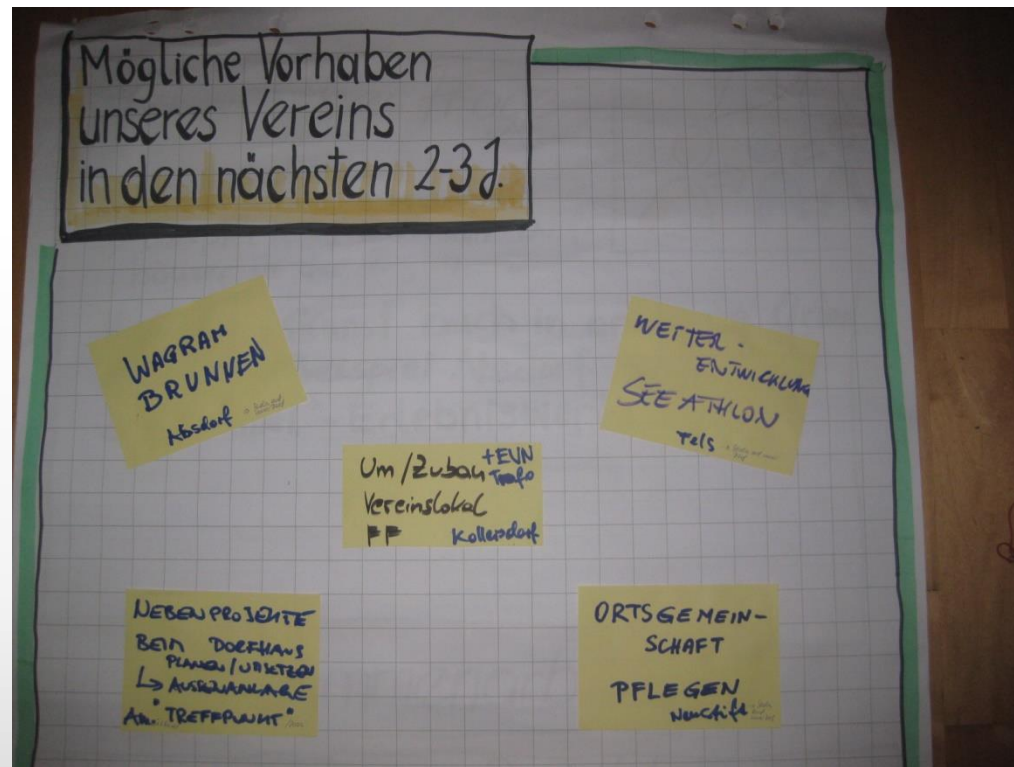 Mögliche Vorhaben
unseres Vereins
in den nächsten 2-3 J.
WAGRAM
BRUNNEN
Absdorf
WEITER-
ENTWICKLUNG
SEEATHLON
Fels
Um/Zubau +EVN
Trafo
Vereinslokal
FF Kollersdorf
NEBENPROJEKTE
BEIM DORFHAUS
PLANEN/UMSETZEN
↳ AUSSENANLAGE
"TREFFPUNKT"
ORTSGEMEIN-
SCHAFT
PFLEGEN
Neustift